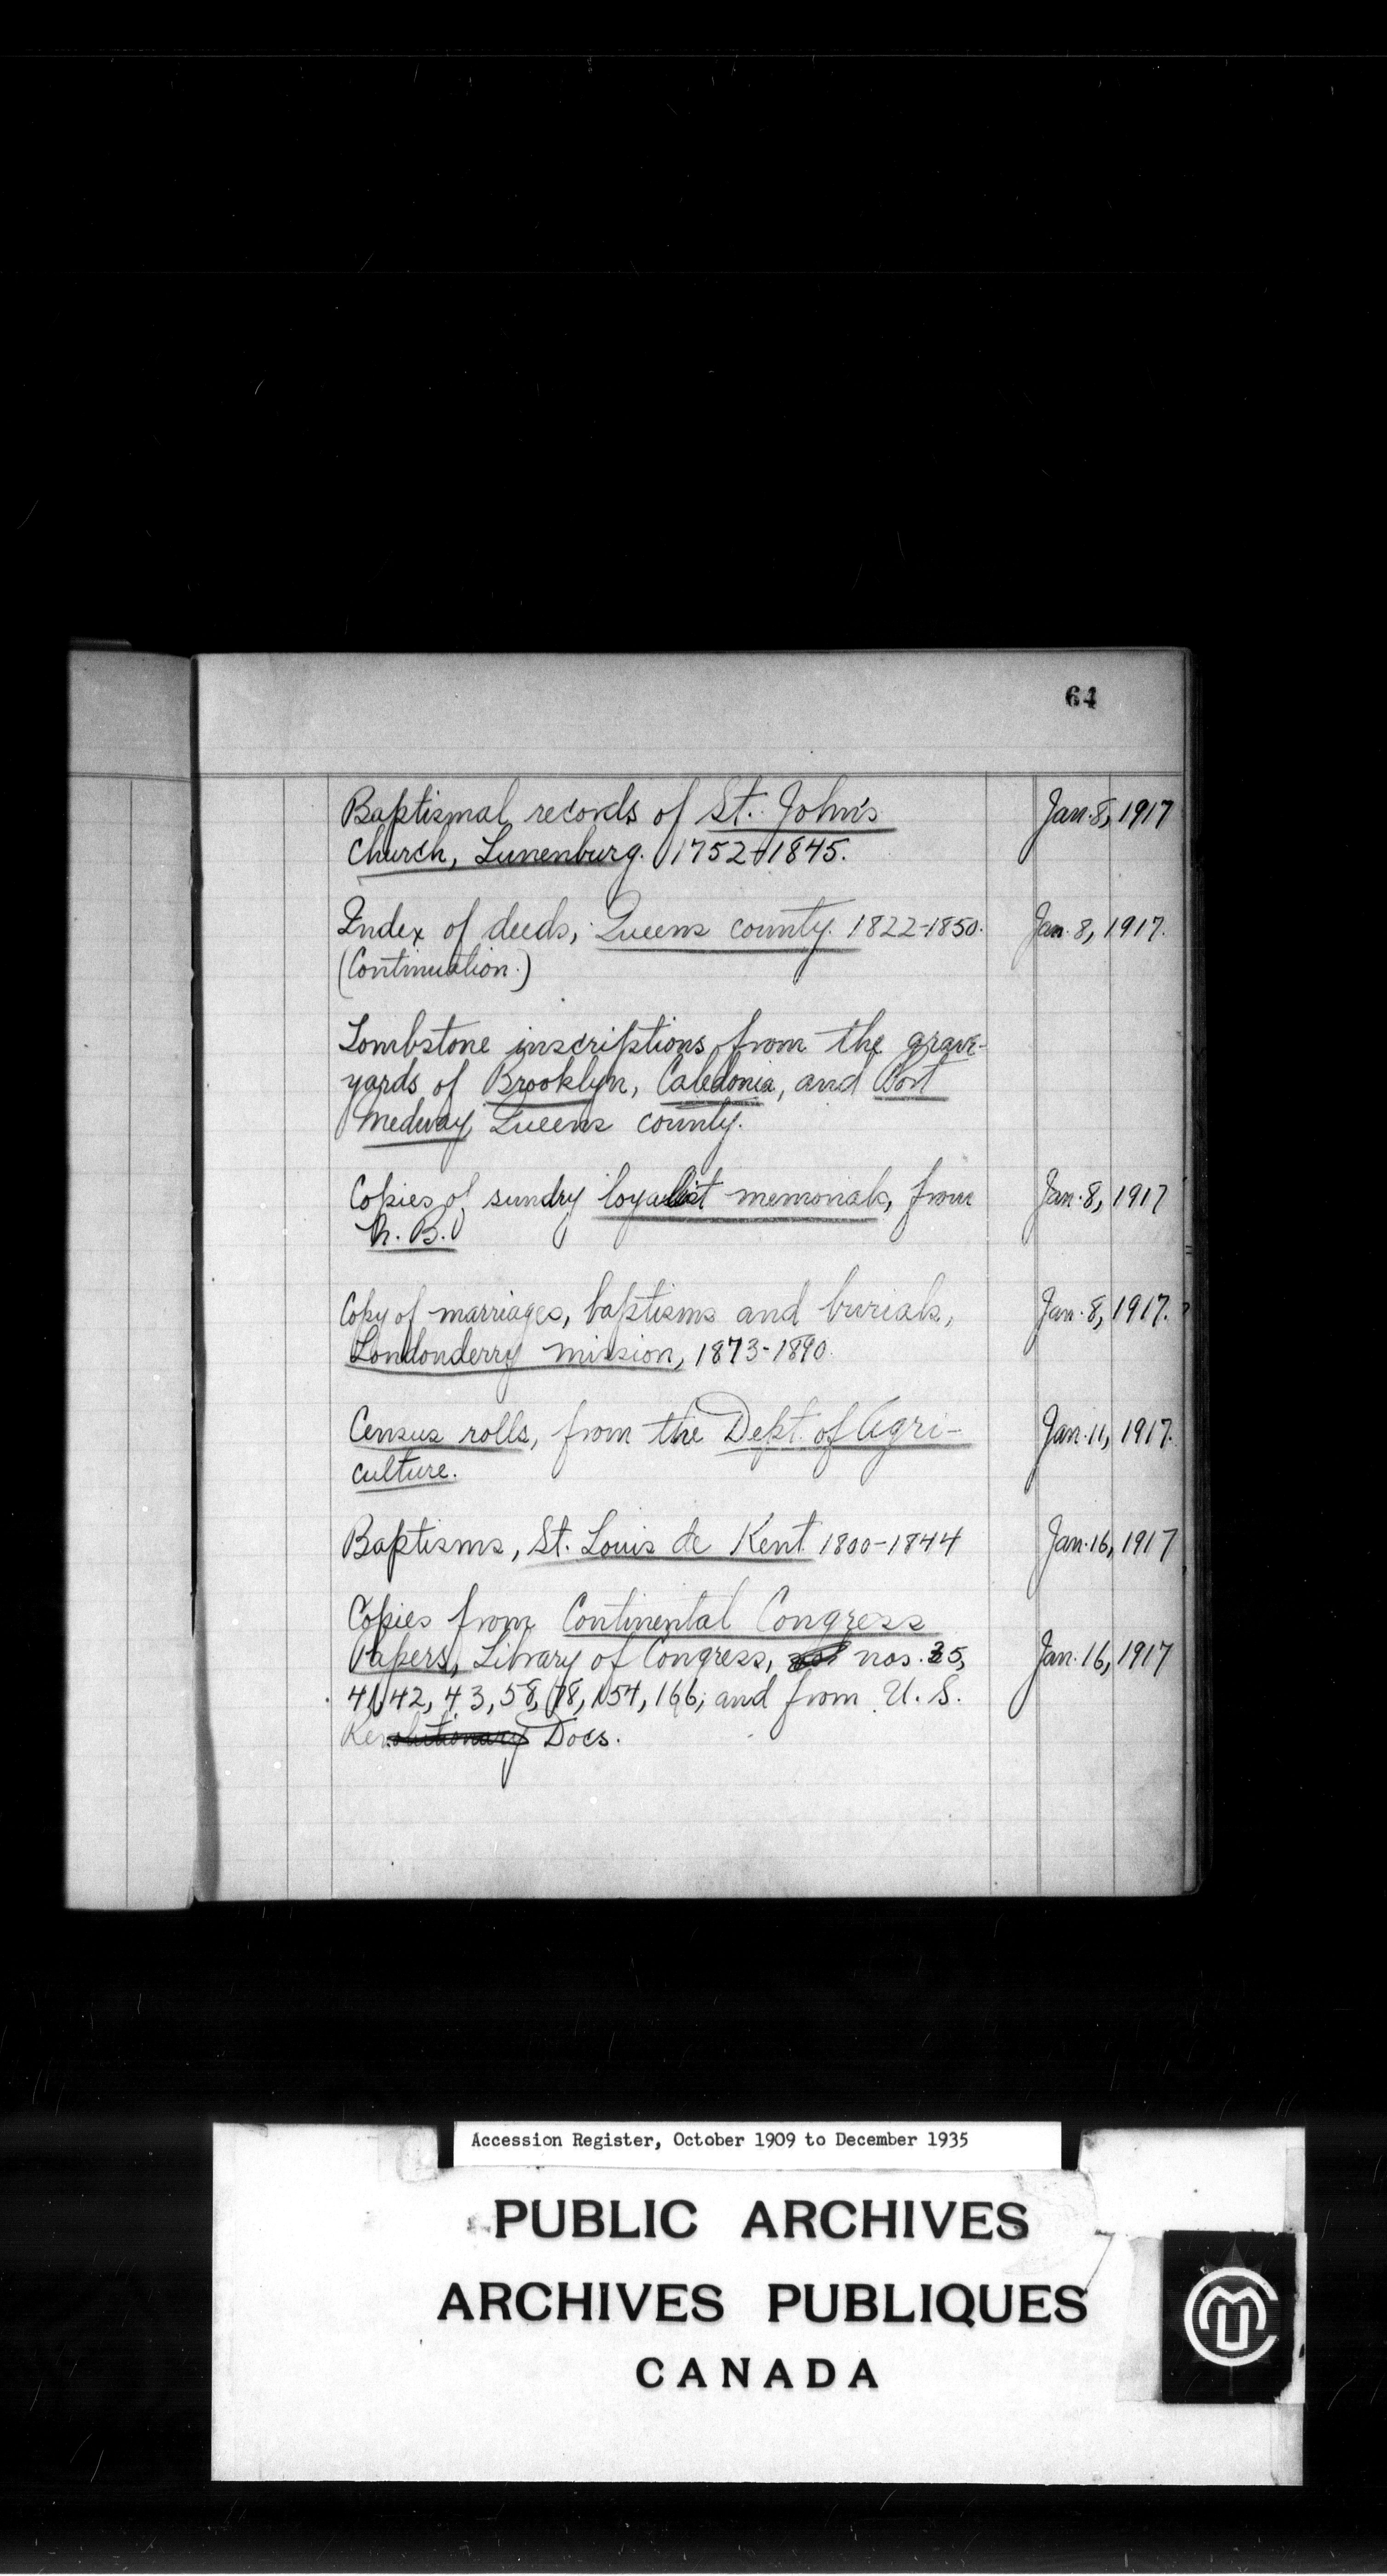 64
Baptismal records of St. John's Jan. 8, 1917
Church, Lunenburg. 1752-1845.
Index of deeds, Queens county. 1822-1850. Jan. 8, 1917.
(Continuation.)
Tombstone inscriptions from the grave-
yards of Brooklyn, Caledonia, and Port
Medway Queens county.
Copies of sundry loyalist memorials, from Jan. 8, 1917
N. B.
Copy of marriages, baptisms and burials, Jan. 8, 1917.
Londonderry mission, 1873-1890.
Census rolls, from the Dept. of Agri- Jan. 11, 1917.
culture.
Baptisms, St. Louis de Kent 1800-1844 Jan. 16, 1917
Copies from Continental Congress
Papers, Library of Congress, nos. 35, Jan. 16, 1917
41, 42, 43, 58, 78, 154, 166; and from U. S.
Revolutionary Docs.
Accession Register, October 1909 to December 1935
PUBLIC ARCHIVES
ARCHIVES PUBLIQUES
CANADA